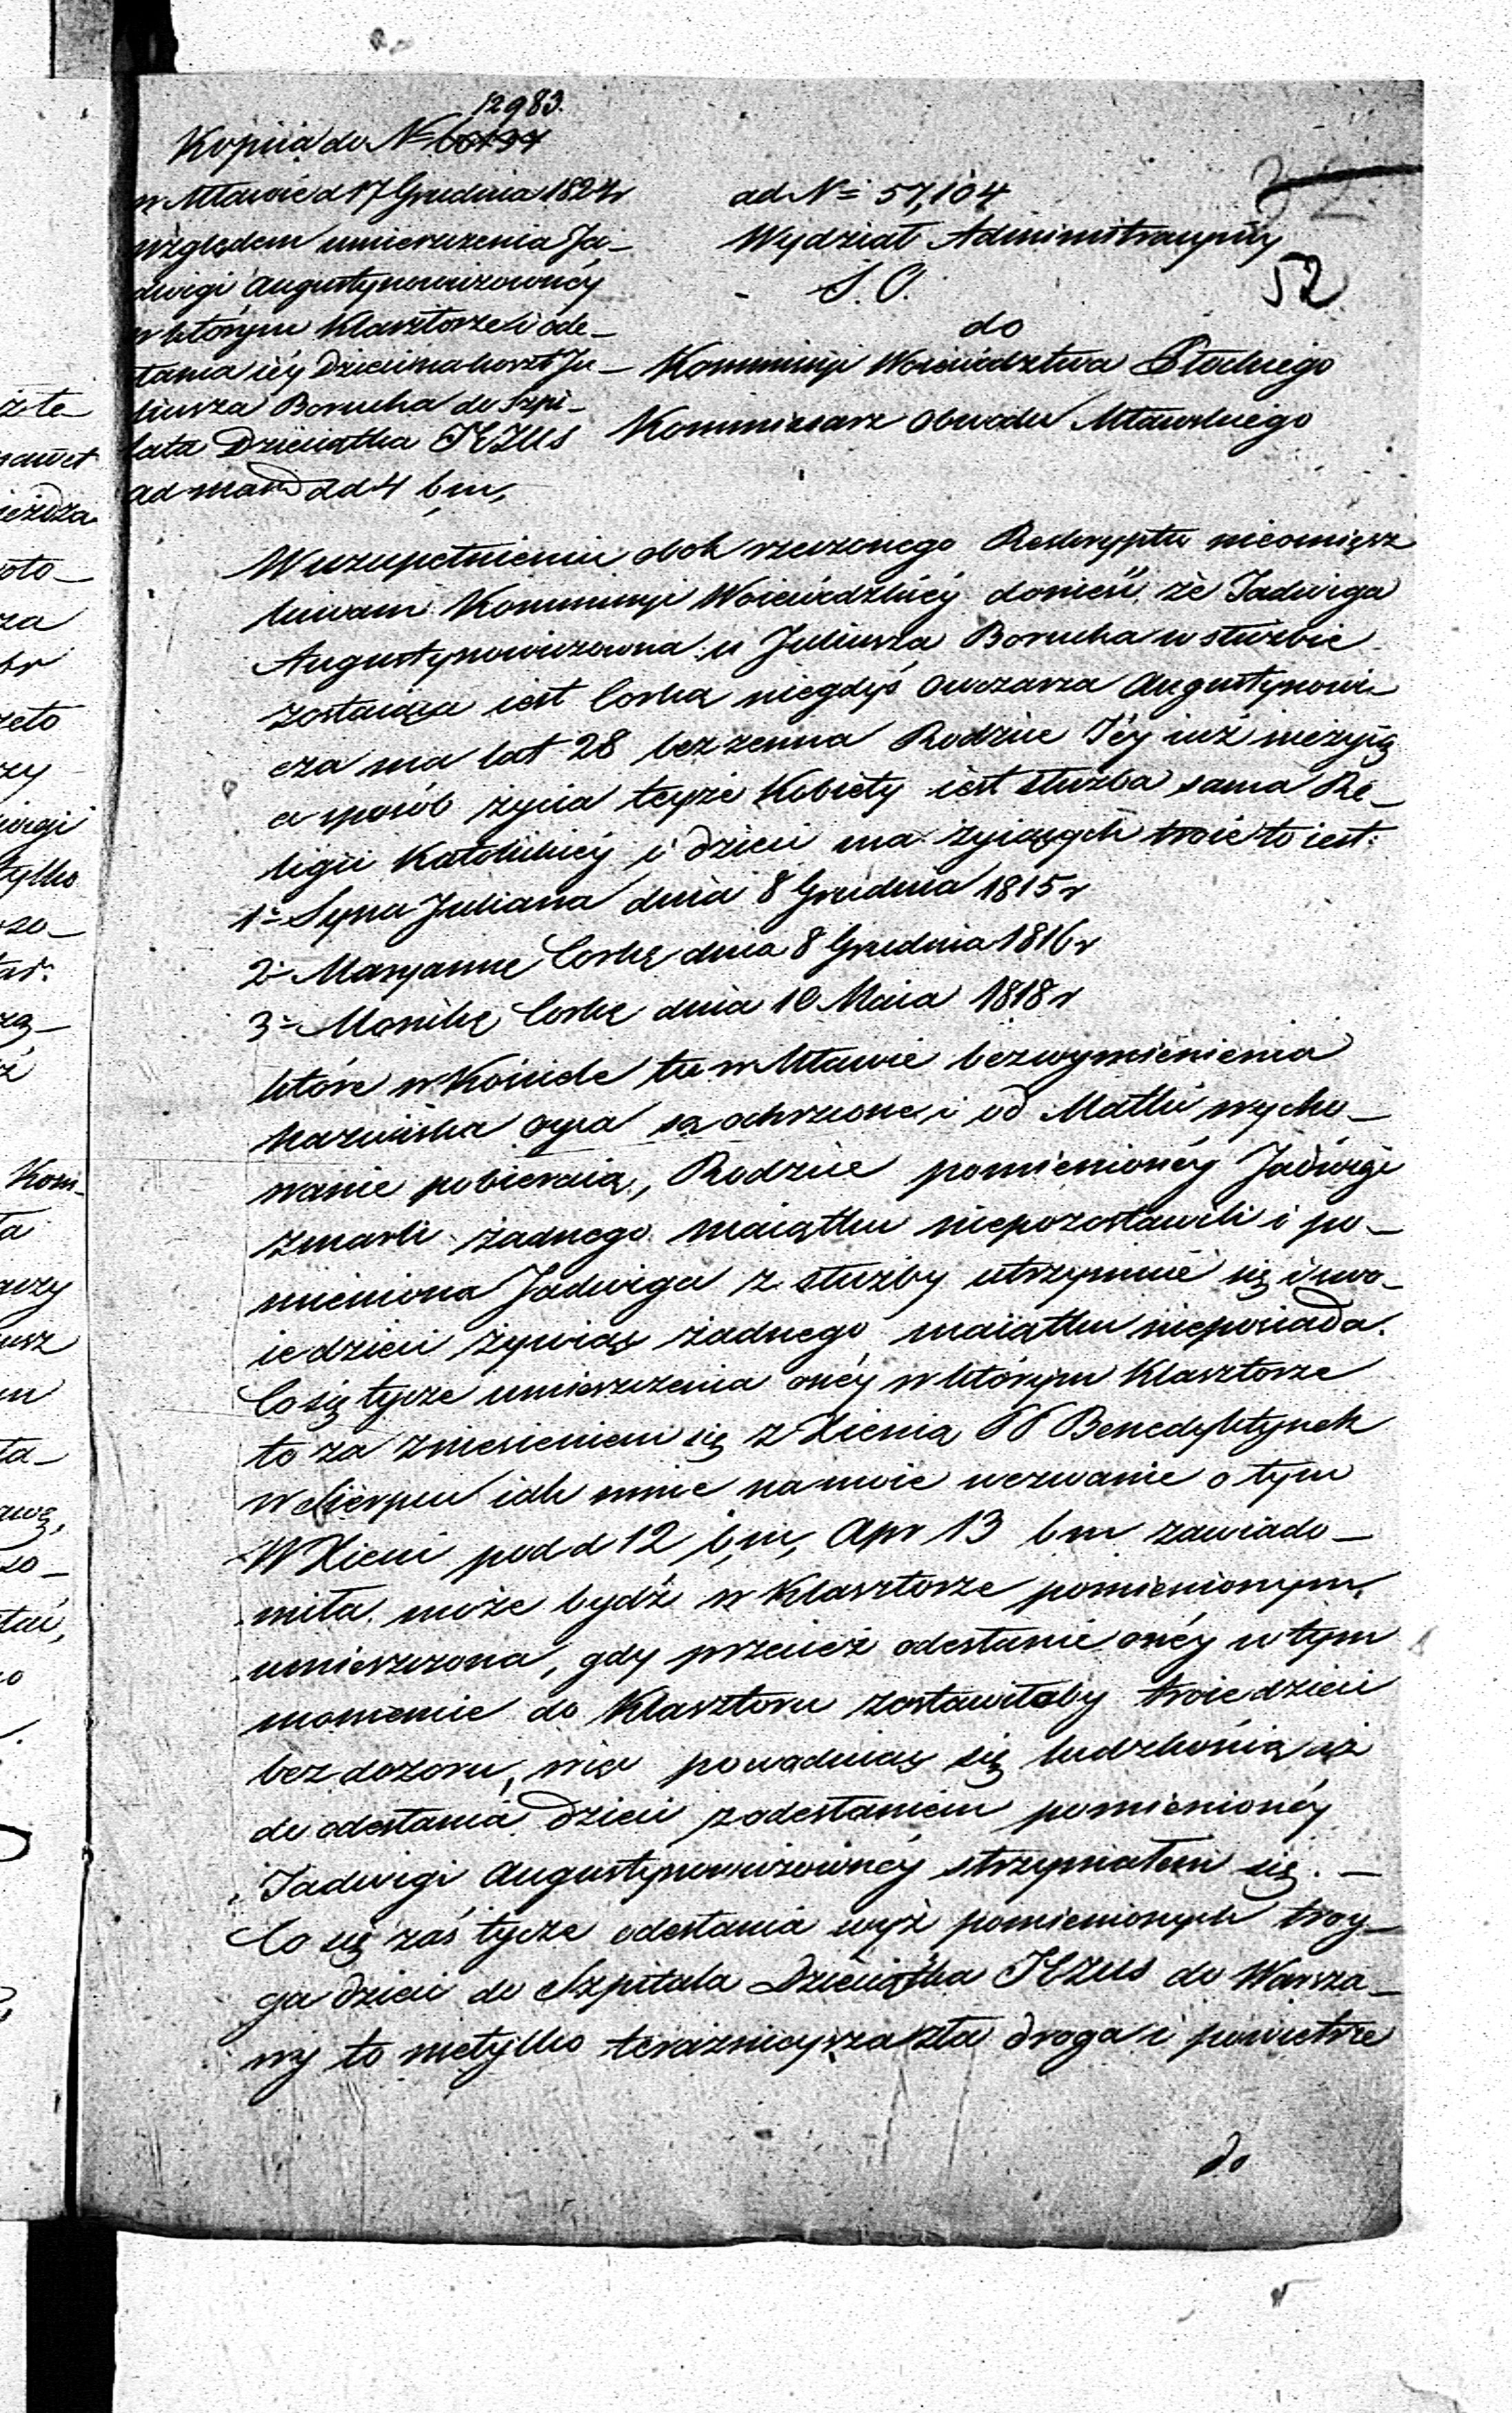 12983.
Kopiia do N=
w Mławie d 17 Grudnia 1824r
względem umieszczenia Ja-
dwigi Augustynowiczowney
w którym Klasztorze i ode-
słania iéy Dzieci
liusza Borucha do Szpi-
tala Dzieciątka JEZUS
ad mand d 4 b m,
ad N= 57,104
Wydział Administracyiny
S. O.
52
do
Kommissyi Woiewództwa Płockiego
Kommissarz Obwodu Mławskiego
W uzupełnieniu obok rzeczonego Reskryptu nieomiesz
kiwam Kommissyi Woiewódzkiéy donieść, że Jadwiga
Augustynowiczowna u Juliusza Borucha w służbie
zostaiąca iest Corką niegdyś Owczarza Augustynowi-
cza ma lat 28 bezżenna Rodzice Jéy iuż nieżyią
a sposób życia teyże Kobiety iest służba sama Re-
ligii Katolickiéy i dzieci ma żyiących troie to iest:
1= Syna Juliana dnia 8 Grudnia 1815r
2= Maryannę Corkę dnia 8 Grudnia 1816r
3= Monikę Corkę dnia 10 Maia 1818r
które w Kościele tu w Mławie bez wymienienia
nazwiska oyca są ochrzcone i od Matki wycho-
wanie pobieraią, Rodzice pomienionéy Jadwigi
zmarli żadnego maiątku niepozostawili i po-
mieniona Jadwiga z służby utrzymuie się i swo-
ie dzieci żywiąc żadnego maiątku nieposiada.
Co się tycze umieszczenia onéy w którym Klasztorze
to za zniesieniem się z Xienią PP Benedyktynek
w Sierpcu iak mnie na moie wezwanie o tym
W Xieni pod d 12 b m, Apr 13 b m zawiado-
miła, może bydź w Klasztorze pomienionym
umieszczona, gdy przecież odesłanie onéy w tym
momencie do Klasztoru zostawiłoby troie dzieci
bez dozoru, więc powoduiąc się ludzkością aż
do odesłania dzieci z odesłaniem pomienionéy
Jadwigi Augustynowiczownéy strzymałem się. -
Co się zaś tycze odesłania wyż pomienionych troy-
ga dzieci do Szpitala Dzieciątka JEZUS do Warsza-
wy to nietylko teraznieysza zła droga i powietrze
do